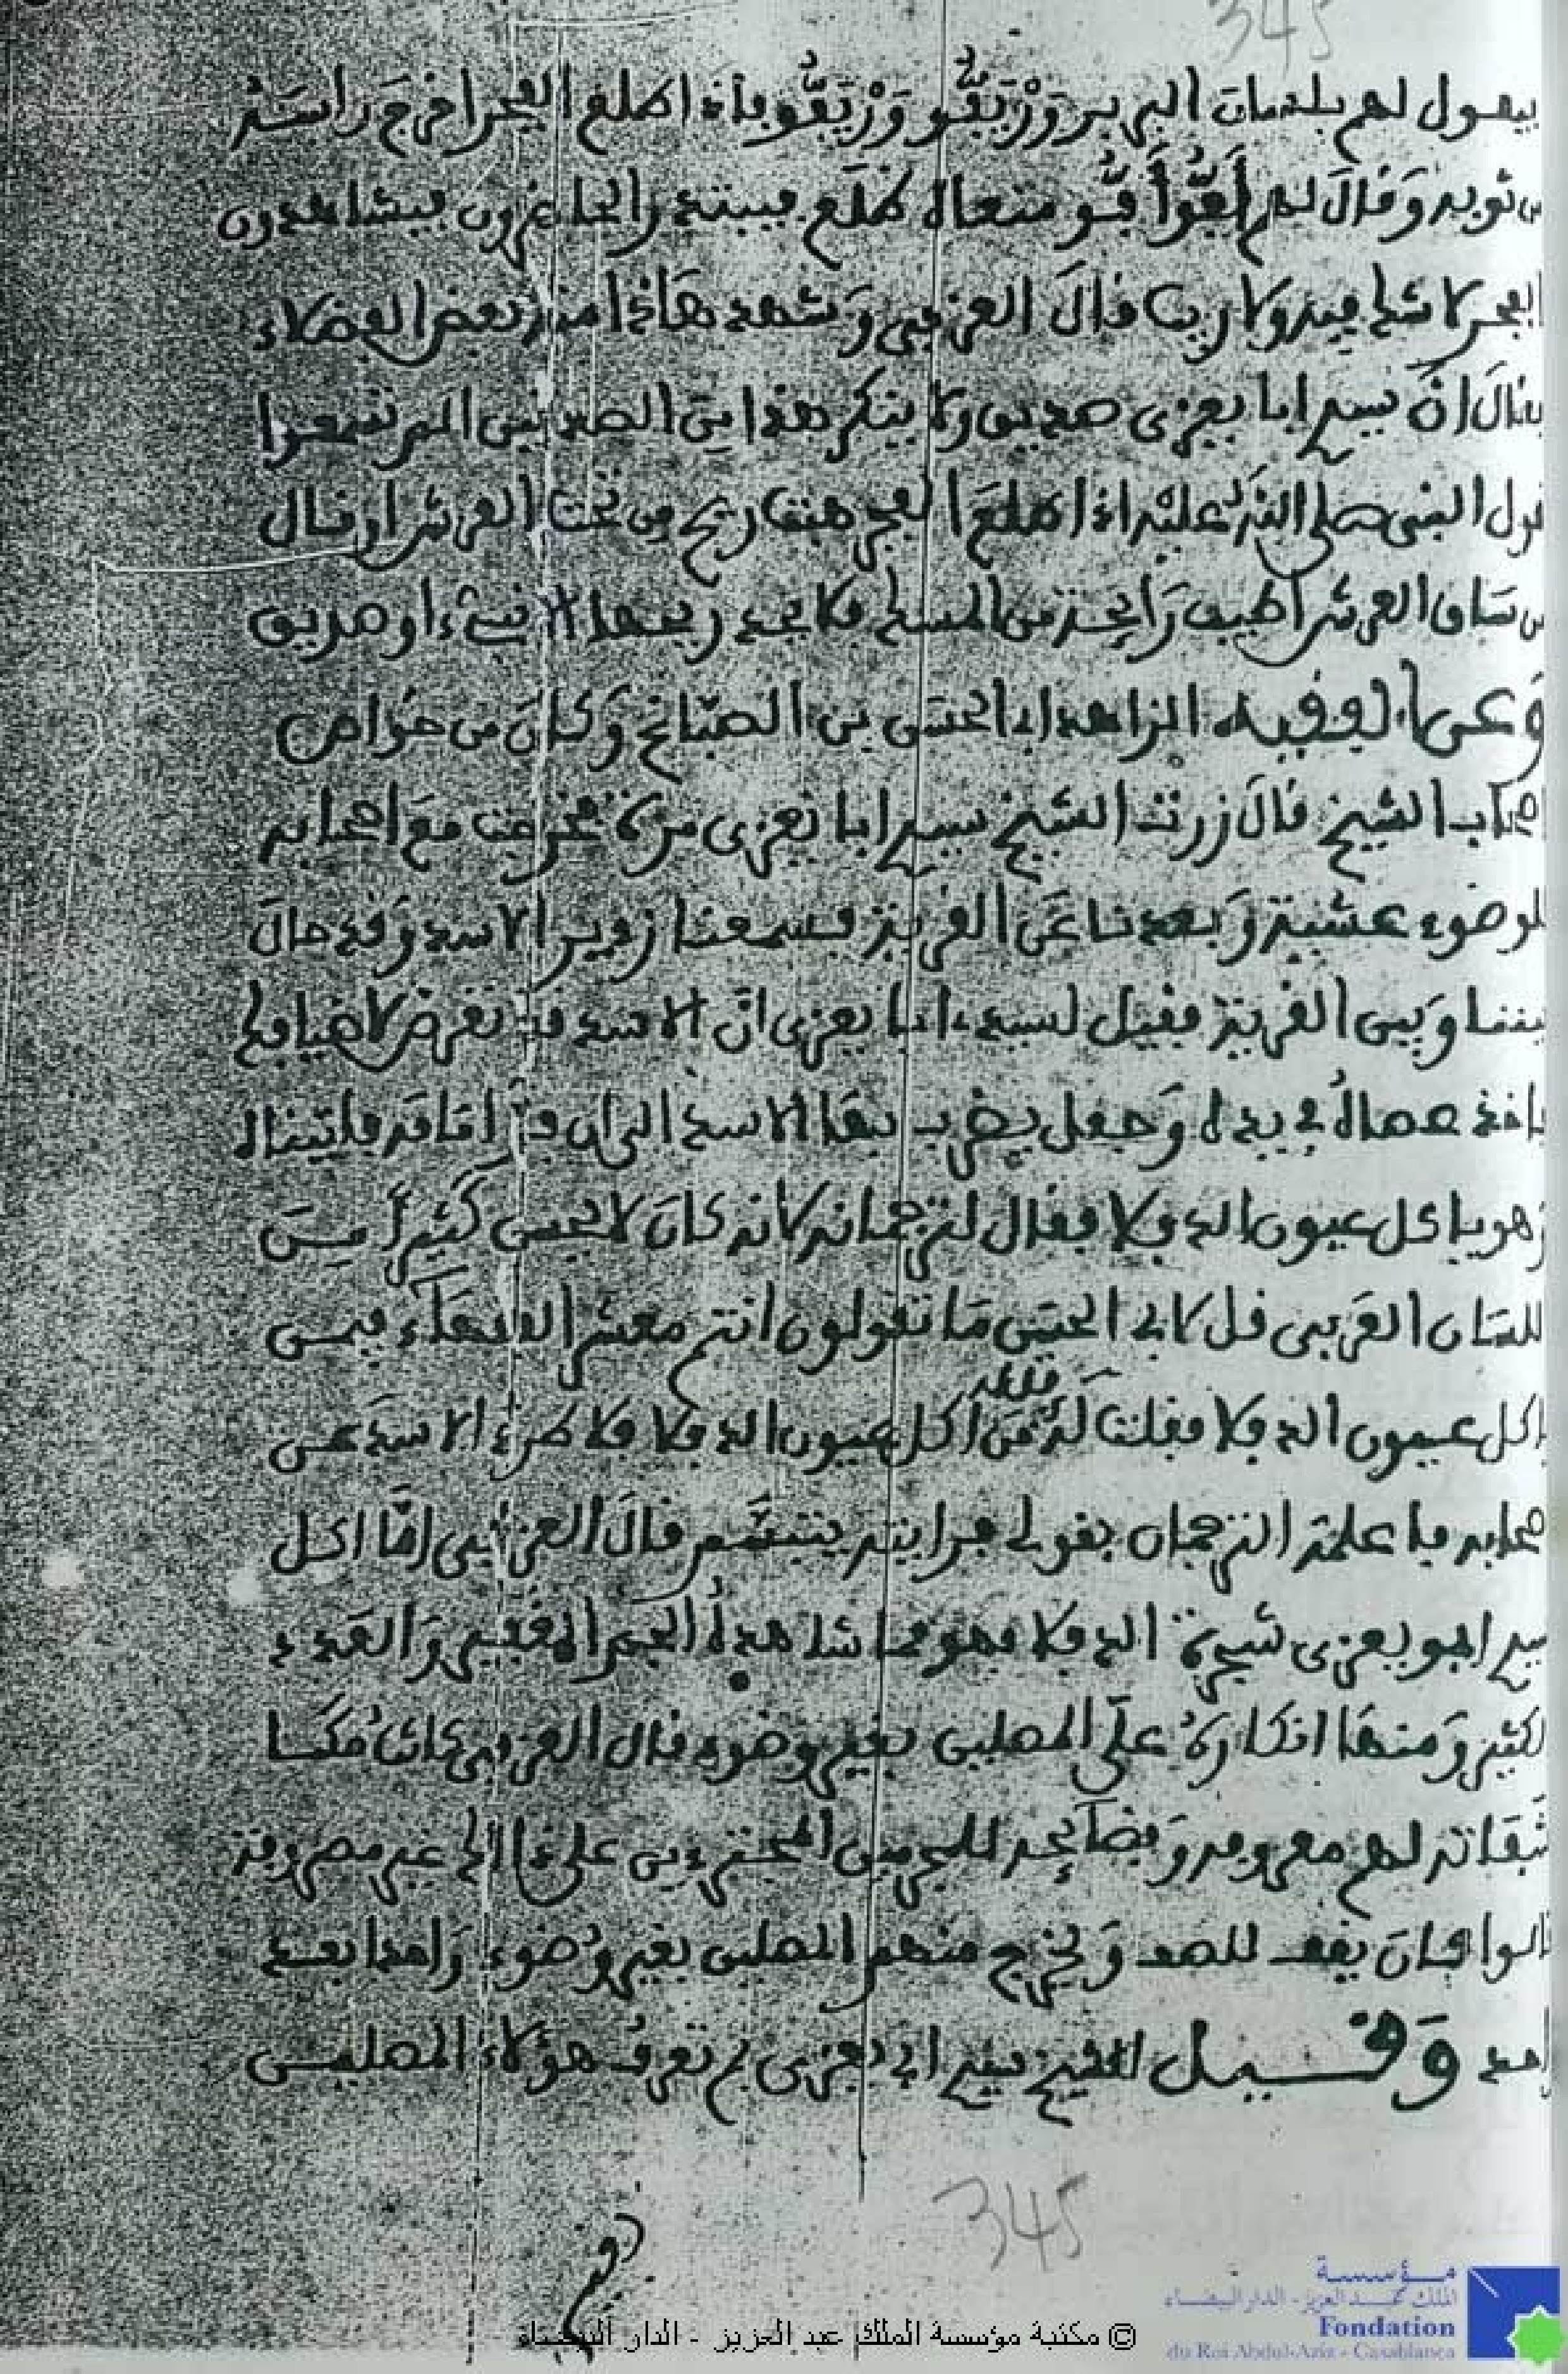 345
فيقول لهم بلسان البربر وَرْتَبقُّو وَرْتَبقُّو فإذا طلع الفجر اخرجَ راسَهُ
من ثوبه وَقالَ لهم أَبقُّوا أَبقُّو معناه طلع فينتبه الحاضرون فيشاهدون
الفجر لا شك فيه ولا ريب قالَ العزفى وَشهد هاذا منه بعض الفضلاء
فقالَ انَّ سيدي ابا يعزى صديق ولا ينكر هذا من الصديقين الم تسمعوا
قول النبى صلى الله عليه اذا طلعَ الفجر هبت ريح من تحت العرش او قال
من سَاق العرش اطيب رَائحة من المسك فلا يجد ريحها الا نبىء او صديق
وَعن الفقيه الزاهد ابى الحسَن بن الصبّاغ وَكانَ من خوَاص
اصحاب الشيخ قالَ زرت الشيخ سيدي ابا يعزى مرة فخرجت معَ اصحابه
للوضوء عشية وَبعدنا عَن القرية فسمعنا زءير الاسد وَقد حالَ
بيننا وَبين القرية فقيل لسيدي ابا يعزى انّ الاسد قد تعرض لاضيافك
فاخذ عصاهُ فى يده وَجعل يضرب بها الاسد الى ان امامه فاتيناه
وهو ياكل عيون الدفلا فقال لترجمانه لانه كانَ لا يحسن كثيرًا منَ
اللسَان العَربى قل لابى الحسَن مَا تقولون انتم معشر الفقهاء فيمن
اكل عيون الدفلا فقلت لهُ قل له مَن اكل عيون الدفلا فلا طرد الاسَد عن
اصحابه فاعلمه الترجمان بقولى فرايته يتبسَّم قالَ العزفى امَّا اكل
سيدي ابو يعزى شجرة الدفلا فهو مما شاهدهُ الجم الغفير وَالعَدد
الكثير وَمنهَا انكارهُ علَى المصلين بغير وضوء قال العزفى كانت مُكا
شفاته لهم معروفه وَفضائحه للمجرمين المجترءين علَى غير مصروفة
قالوا فكانَ يقف للصف وَيخرج منهم المصلين بغير وُضوء وَاحدا بعد
واحد وَقيل للشيخ سيدي ابى يعزى بم تعرف هؤلاء المصلين
345
© مكتبة مؤسسة الملك عبد العزيز - الدار البيضاء
مؤسسة
الملك عبد العزيز - الدار البيضاء
Fondation
du Roi Abdul-Aziz - Casablanca